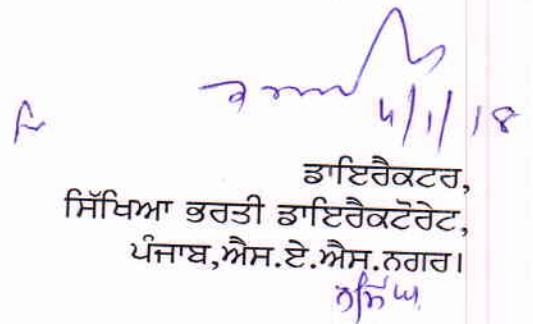 4/1/18
ਡਾਇਰੈਕਟਰ,
ਸਿੱਖਿਆ ਭਰਤੀ ਡਾਇਰੈਕਟੋਰੇਟ,
ਪੰਜਾਬ,ਐਸ.ਏ.ਐਸ.ਨਗਰ।